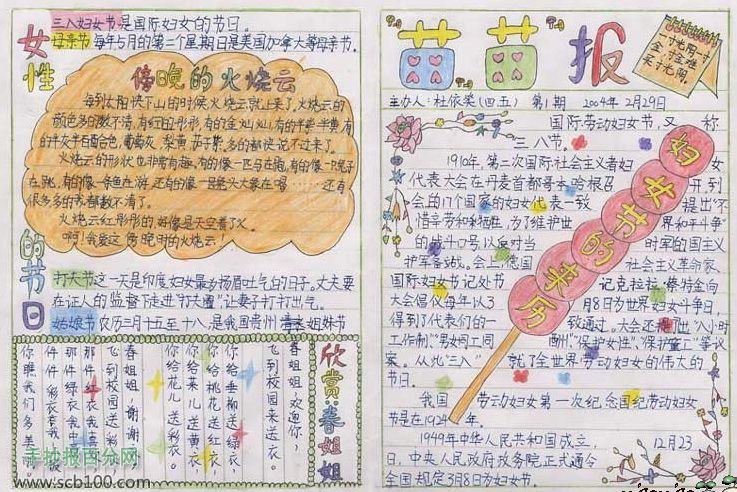 女性的节日
三八妇女节是国际妇女的节日。
母亲节 每年5月的第二个星期日是美国加拿大等母亲节。
傍晚的火烧云
每到太阳快下山的时候火烧云就上来了,火烧云的
颜色多的数不清,有红彤彤
火烧云的形状也非常有海,有的像一匹马在跑,有的像一只兔子
在跳,有的像一条鱼在游,还有的像一只
很多多的我都数不清了。
火烧云红彤彤的,好像是天空着了火。
啊!我爱这傍晚时的火烧云!
打夫节 这一天是印度妇女最为扬眉吐气的日子。丈夫要
在证人的监督下走进"打夫圈"让妻子打打出气。
姑娘节 农历三月十五至十八,是我国贵州 姐妹节
欣赏:春姐姐
春姐姐,欢迎你,
飞到校园来送衣。
你给垂柳送绿衣,
你给桃花送红衣,
你给菜儿送黄衣,
你给花儿送彩衣。
春姐姐,谢谢,
飞到校园送彩
那件绿衣我
件件彩衣套
你瞧我们多美
手抄报百分网
www.scb100.com
苗苗报
一寸光阴一寸
金 寸金难
买寸光阴。
主办人:杜依笑(四五) 第1期 2004年2月29日
妇女节的来历
国际劳动妇女节,又称
三八节。
1910年,第二次国际社会主义者妇
代表大会在丹麦首都哥本哈根召开,到
会的17个国家的妇女代表一致提出"不
惜辛劳和牺牲,为了维护世界和平斗争"
的战斗口号,以反对当时军的国主义
扩军备战。会上,德国社会主义革命家、
国际妇女节记处书记克拉拉·蔡特金向
大会倡仪每年以3月8日为世界妇女斗争日,
得到了代表们的一致通过。大会还提出"八小时
工作制""男女同工同酬","保护女性","保护童工"等议
案。从此"三八"就了全世界劳动妇女的伟大的
节日。
我国劳动妇女第一次纪念国纪劳动妇女
节是在1924年。
1949年中华人民共和国成立,12月23
日,中央人民政府政务院正式通令
全国规定3月8日为妇女节。